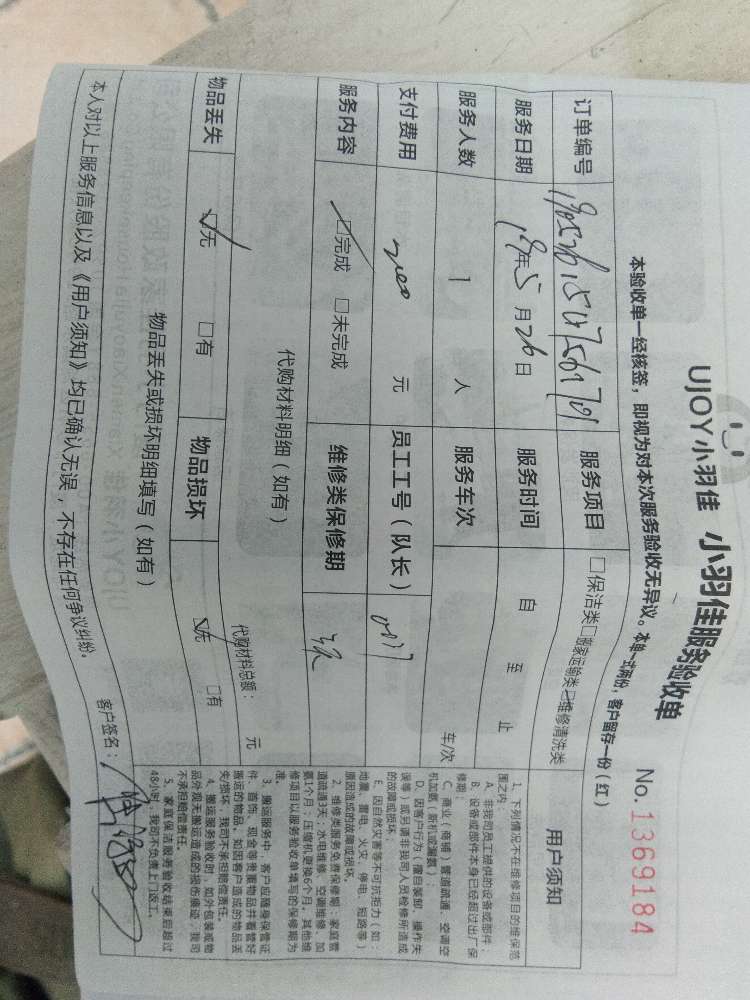 UJOY小羽佳 小羽佳服务验收单
No. 1369184
本验收单一经核签，即视为对本次服务验收无异议。本单一式两份，客户留存一份（红）
订单编号
服务项目 □保洁类 □搬家运输类 ☑维修清洗类
服务日期 19年5月26日 服务时间 自 至 止
服务人数 1 人 服务车次 车/次
支付费用 200 元 员工工号（队长）
服务内容 ☑完成 □未完成 维修类保修期
代购材料明细（如有）
代购材料总额： 元
物品丢失 ☑无 □有 物品损坏 ☑无 □有
物品丢失或损坏明细填写（如有）
本人对以上服务信息以及《用户须知》均已确认无误，不存在任何争议纠纷。
客户签名：
用户须知
1、下列情况不在维修项目的维保范
围之内：
A、非我司员工提供的设备或部件；
B、设备或部件本身已经超过出厂保
修期；
C、商业（商铺）管道疏通、空调空
机加氨（新机或漏氨）；
D、因客户行为（擅自装卸、操作失
误等）或另请非我司人员检修所造成
的故障或损坏。
E、因自然灾害等不可抗拒力（如：
地震、雷电、火灾、停电、短路等）
原因造成的故障或损坏。
2、维修类服务免费保修期：家庭管
道疏通3天；水电维修、空调维修、加
氨1个月；压缩机更换6个月。其他维
修项目以服务验收单填写的保修期为
准。
3、搬运服务中，客户应随身保管证
件、首饰、现金等贵重物品并看管好
搬运的物品，如因客户造成的物品丢
失/损坏，我司不承担赔偿责任。
4、搬运服务验收时，如外包装或物
品外观无搬运造成的损伤痕迹，我司
不承担赔偿责任。
5、家庭保洁服务验收结束后超过
48小时，我司不负责上门返工。